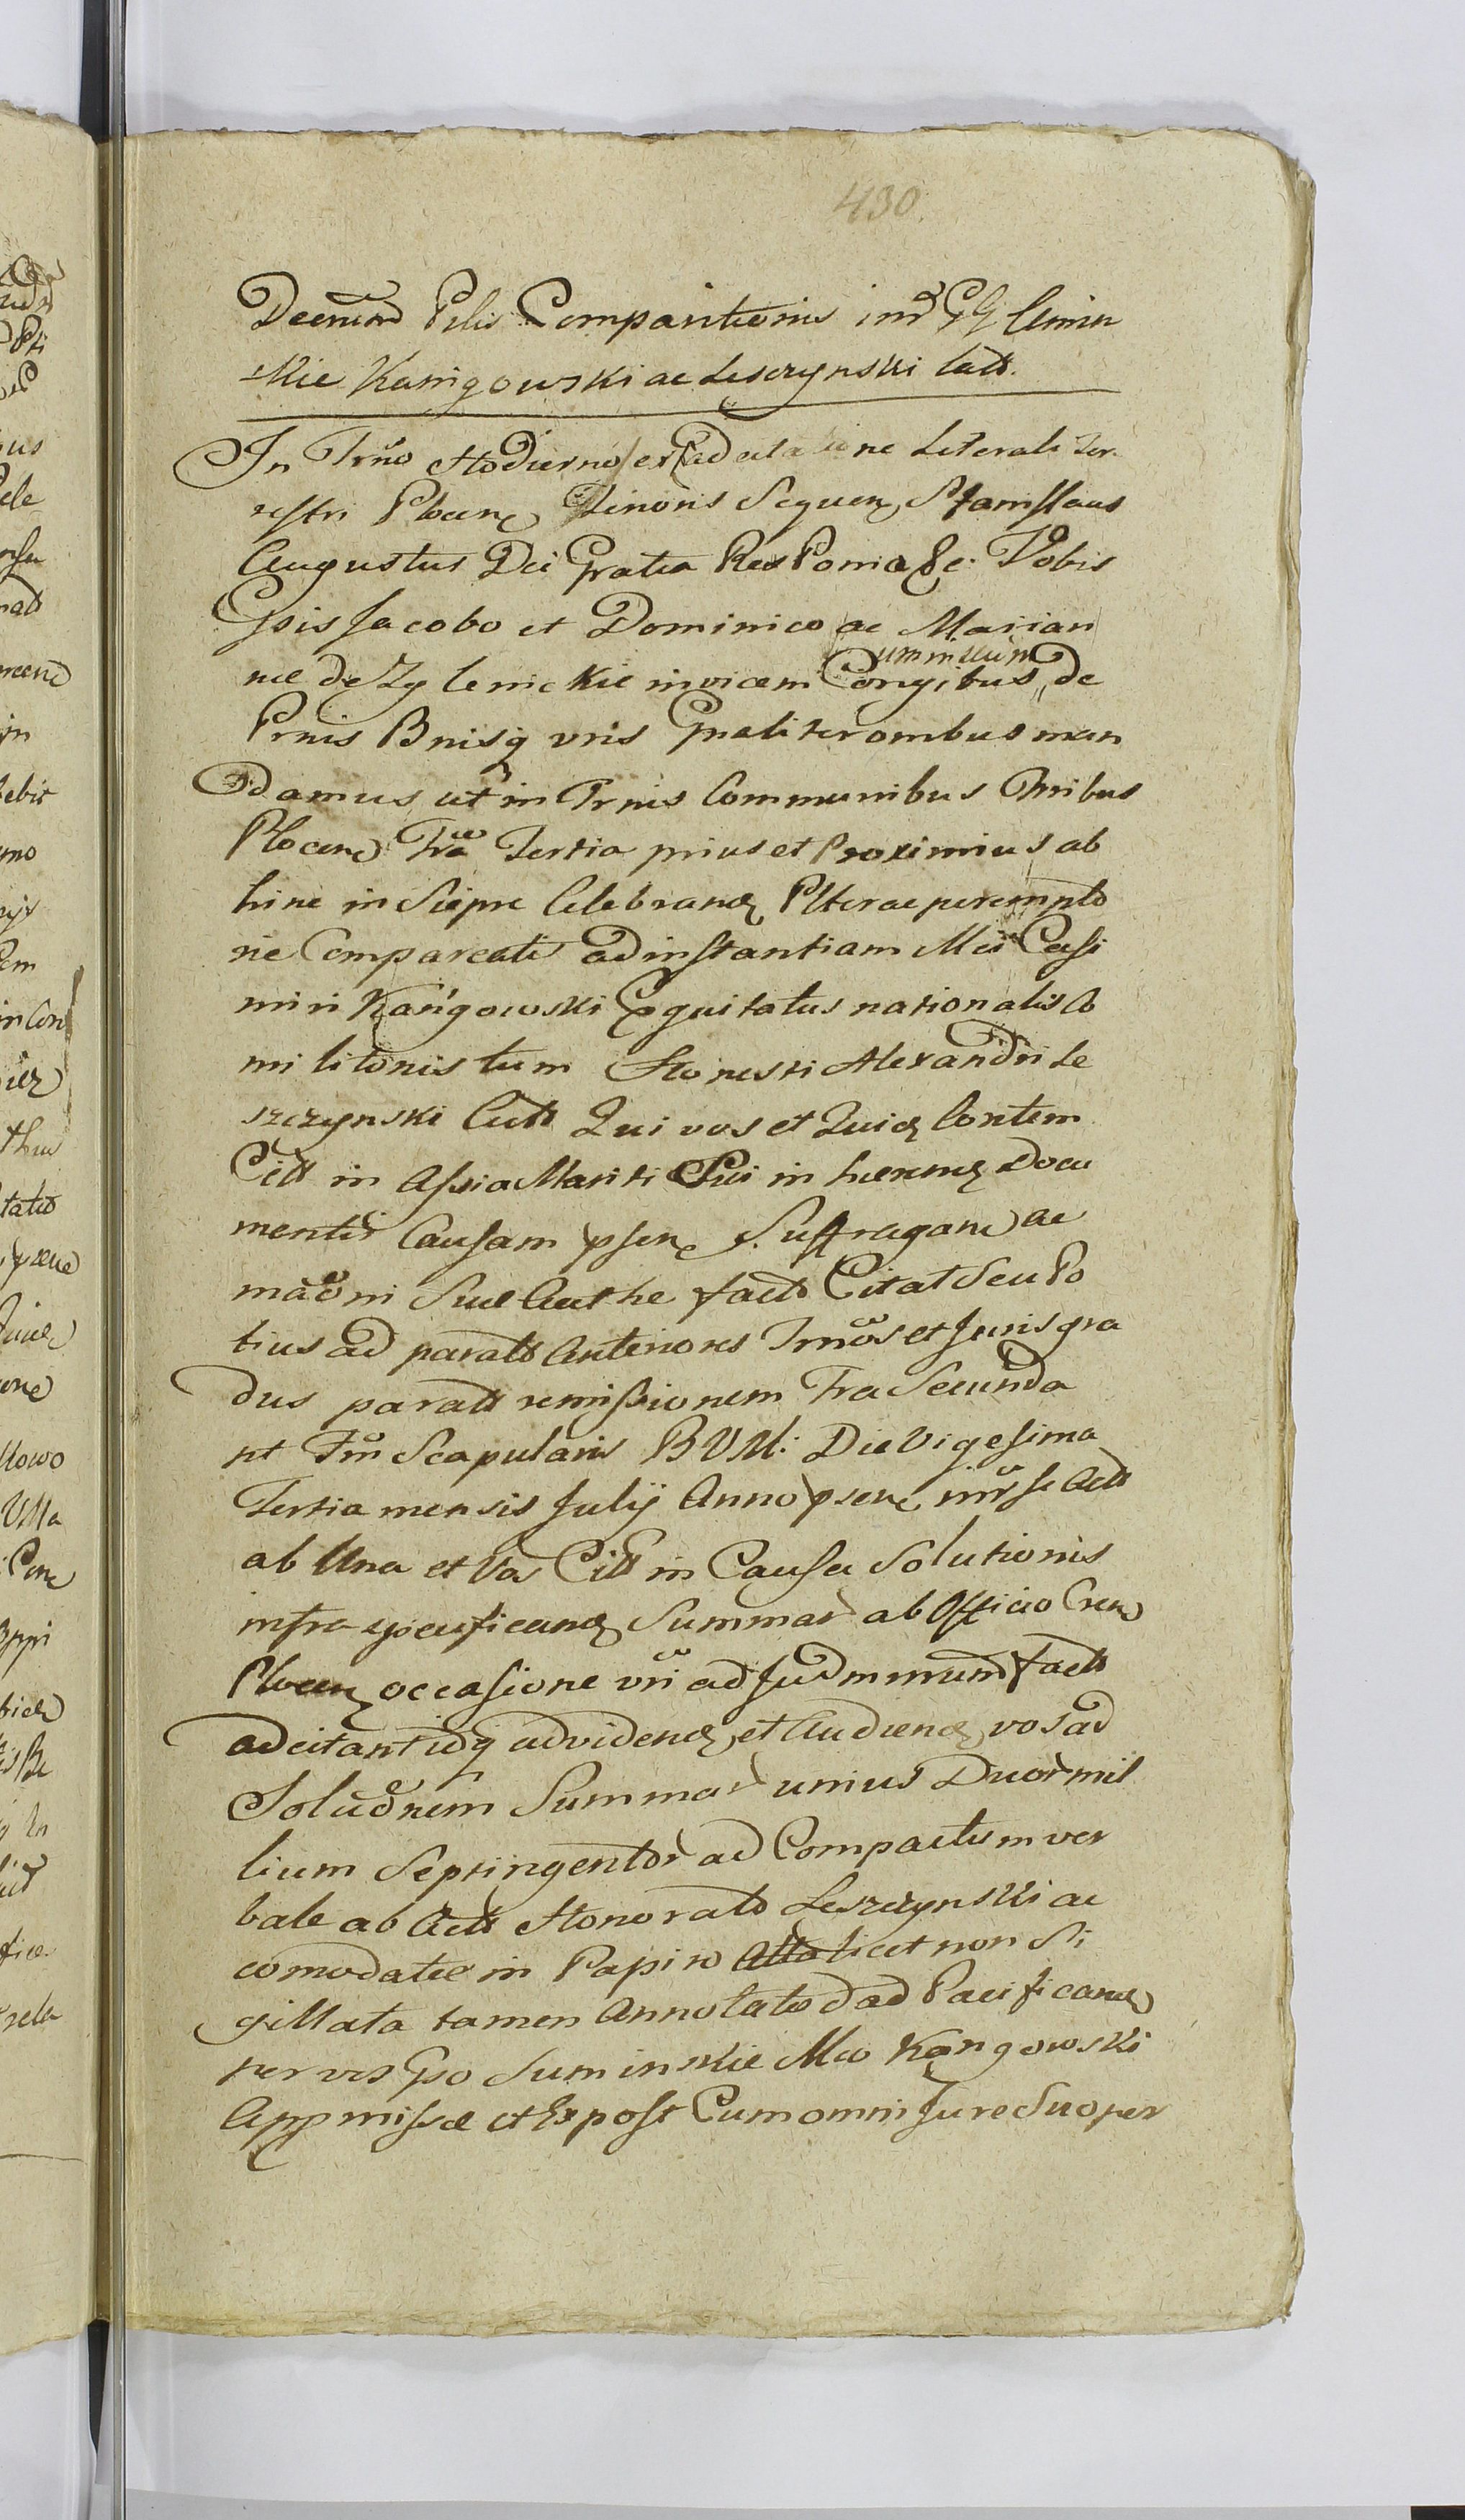 430
Decretum Pilis Comparitionis int GG Sumin
skie Kanigowski ac Lesczynski lats.
In Trno Hodierno ex Adcitatione Literali Ter
restri Plocen Tenoris Sequen Stanislaus
Augustus Dei Gratia Rex Ponia &c. Vobis
Gsis Jacobo et Dominico ac Marian
umminium
nae de Zglenickie invicem Congibus, de
Prnis Bnisq vris Gnaliter ombus man
damus ut in Trnis Communibus Tribus
Plocen Fra Tertia prius et Proximius ab
hinc in Sieprc Celebrand Plterae perempto
rie Compareatis ad instantiam Mci Casi
miri Kanigowski Equitatus nationalis Co
militonis tum Honesti Alexandri Le
szczynski Actt Qui vos et Quid Contem
Citt in Assia Mariti Sui in haerend Docu
mentis Causam psen Suffragan ac
madni Suae Authe facto Citat Seu Po
tius ad parats Anteriores Trnos et Juris gra
dus parats remissionem Fra Secunda
pt Fm Scapularis B V M: Die Vigesima
Tertia mensis Julij Anno psen nnr se Actt
ab Una et Vos Citt in Causa Solutionis
infra specificand Summar ab Officio Cren
Plocen occasione vri ad Judm mund facto
adcitant idq ad videnď et Audiend vos ad
Soludnem Summar unius Duor mil
lium Septingentor ad Compactum ver
bale ab Actt Honorato Leszczynski ac
comodatae in Papiro licet non Si
gillata tamen Annotato ad Pacificand
per vos Gso Suminskie Mco Kangowski
Appmissae et Expost Cum omni Jure Suo per